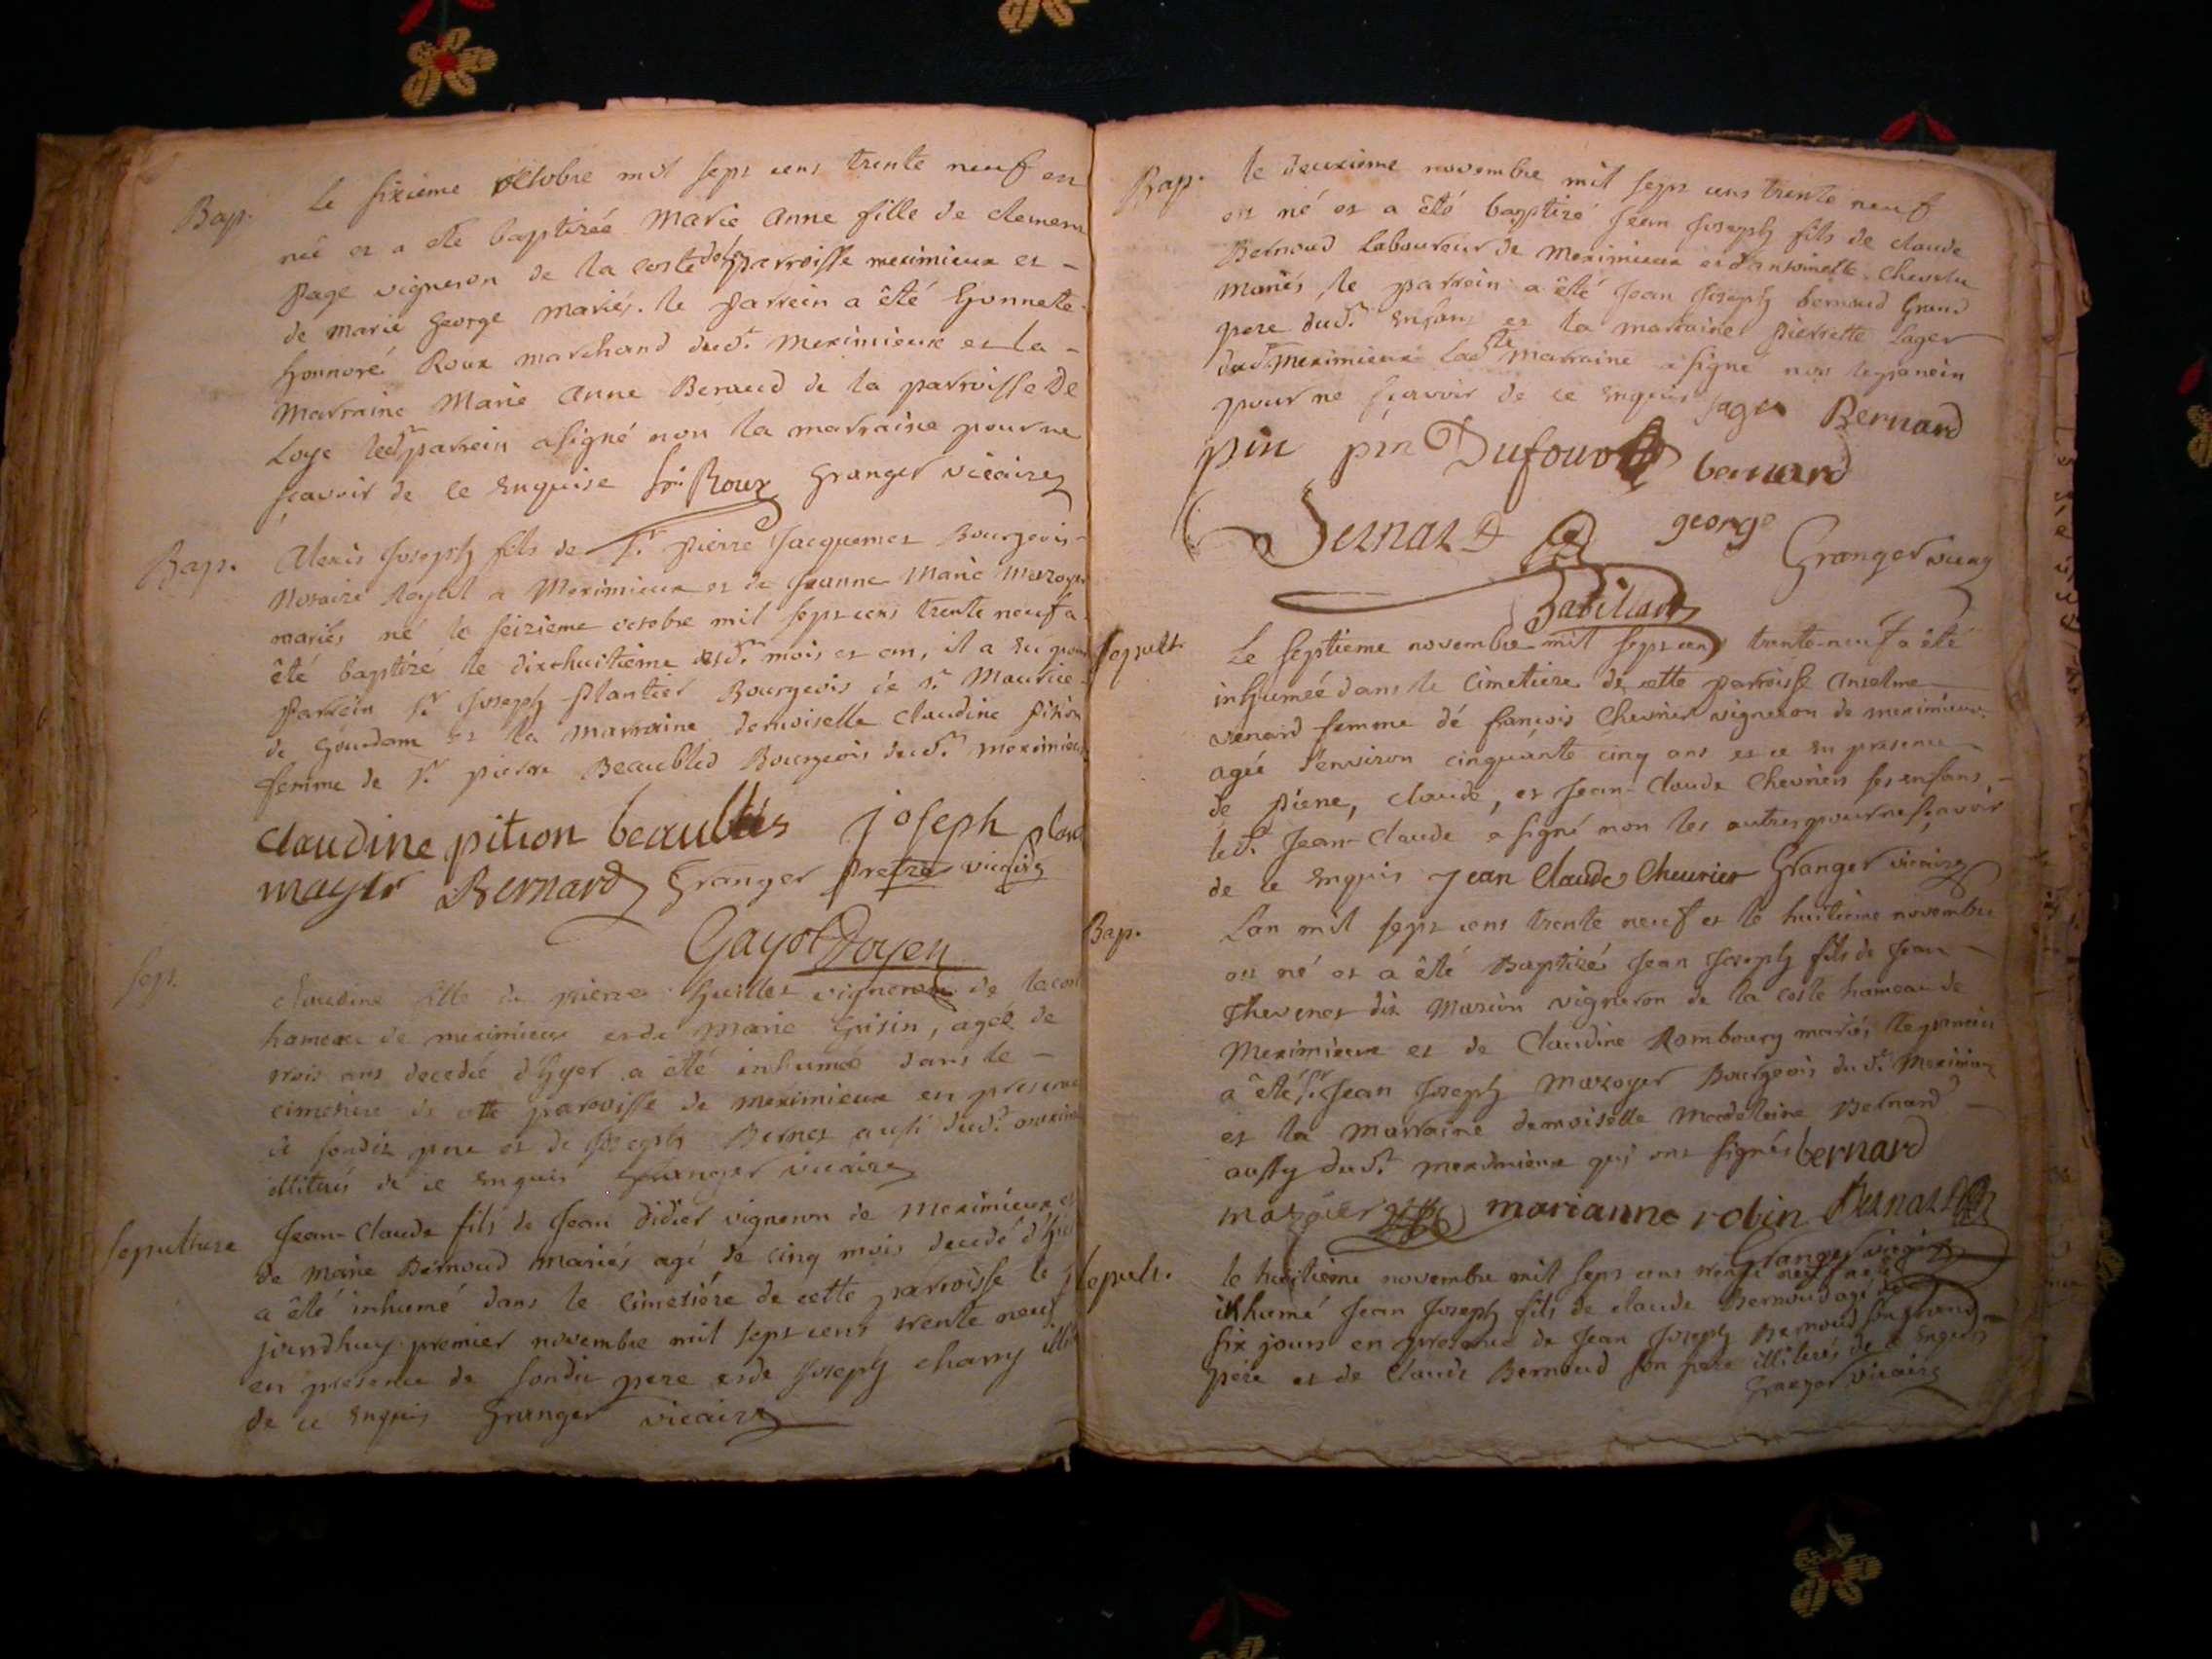 Bap. Le sixieme octobre mil sept cens trente neuf est
née et a eté baptizée Marie Anne fille de clement
page vigneron de la coste de la parroisse meximieux et -
de marie George mariés. le parrein a êté honnete
honnoré Roux marchand dud.t Meximieux et la -
marraine Marie Anne Beraud de la parroisse De
Loye led.t parrein a signé non la marraine pour ne
sçavoir de ce enquise Roux Granger vicaire
Bap. Alexis Joseph fils de S.r pierre Jacquemet Bourgeois -
Notaire Royal a Meximieux et de Jeanne Marie mazoyer
mariés né le seizieme octobre mil sept cens trente neuf a
êté baptizé le dixhuitieme desd.ts mois et an, il a eu pour
parrein S.r Joseph plantier Bourgeois de S.t Maurice
de Gourdans et la marraine demoiselle claudine pition
femme de S.r pierre Beaublez Bourgeois dud.t meximieux
claudine pition beaubles joseph plan
mayer Bernard Granger pretre vicaire
Gayot Doyen
Sep. claudine fille de pierre Guillet vigneron de la cost
hameau de meximieux et de marie Grisin, agée de
trois ans decedée d'hyer a êté inhumée dans le -
cimetiere de cette parroisse de meximieux en presence
de sondit pere et de Joseph Bernet aussi dud.t meximi
illiterés de ce enquis Granger vicaire
sepulture Jean-Claude fils de Jean Didier vigneron de Meximieux et
de Marie Bernoud mariés agé de cinq mois decedé d'hyer
a êté inhumé dans le cimetiére de cette parroisse le
jourdhuy premier novembre mil sept cens trente neuf
en presence de sondit pere et de Joseph charry illit
de ce enquis Granger vicaire
Bap. le deuxieme novembre mil sept cens trente neuf
est né et a êté baptizé Jean Joseph fils de claude
Bernoud Laboureur de Meximieux et d'antoinette Chevelu
mariés, le parrein a êté Jean Joseph bernoud Grand
pere dud.t enfant et la marraine pierrette Lager
dud.t meximieux lad.te marraine a signé non le parrein
pour ne sçavoir de ce enquis lager Bernard
pin pin Dufour bernard
Bernard george Granger vicaire
Babillard
sepult. Le septieme novembre mil sept cens trente-neuf a êté
inhumée dans le cimetiere de cette parroisse Anselme
venard femme de françois Chevrier vigneron de meximieux
agée d'environ cinquante cinq ans et ce en presence
de pierre, claude, et Jean-Claude Chevriers ses enfans, -
led.t Jean-Claude a signé non les autres pour ne sçavoir
de ce enquis Jean Claude Cheurier Granger vicaire
Bap. L'an mil sept cens trente neuf et le huitieme novembre
est né et a êté Baptizé Jean Joseph fils de Jean -
Thevenet dit Mazuin vigneron de la coste hameau de
Meximieux et de Claudine Rambourg mariés, le parrein
a êté S.r Jean Joseph mazoyer Bourgeois dud.t Meximieux
et la marraine demoiselle Madeleine Bernard -
aussy dud.t meximieux qui ont signés bernard
mazoier marianne robin Bernard
Granger vicaire
sepult. le huitieme novembre mil sept cens trente neuf a êté
inhumé Jean Joseph fils de claude Bernoud agé de
six jours en presence de Jean Joseph Bernoud son grand -
pére et de Claude Bernoud son pere illiterés de ce enquis
Granger vicaire